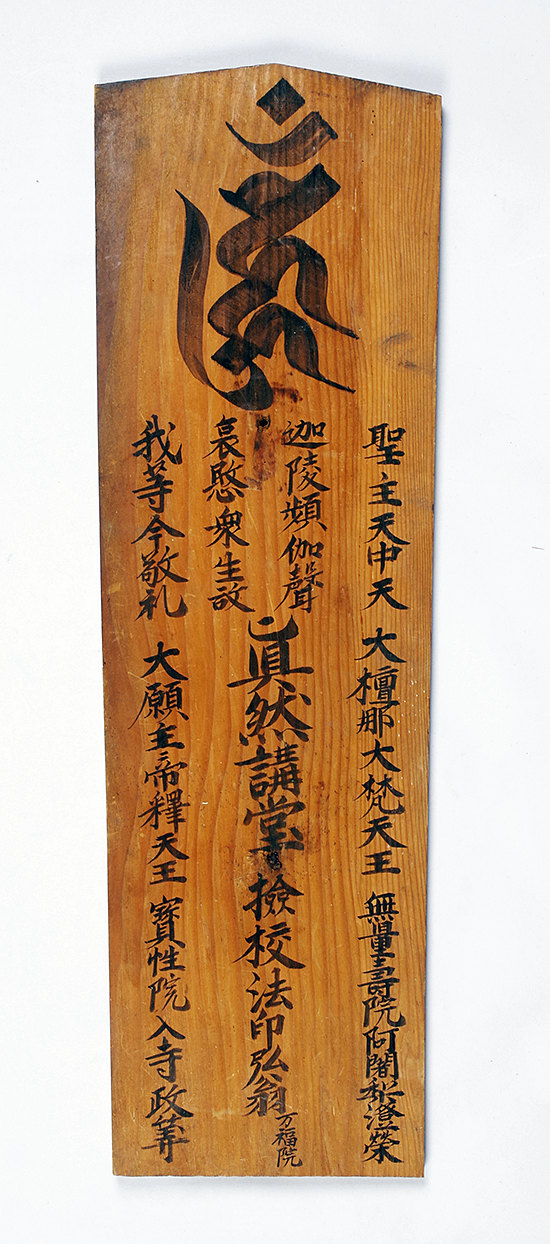 聖主天中天 大檀那大梵天王 無量壽院阿闍梨澄榮
迦陵頻伽聲
真然講堂 撿校法印弘翁 万福院
哀愍衆生故
我等今敬礼 大願主帝釋天王 寳性院入寺政算